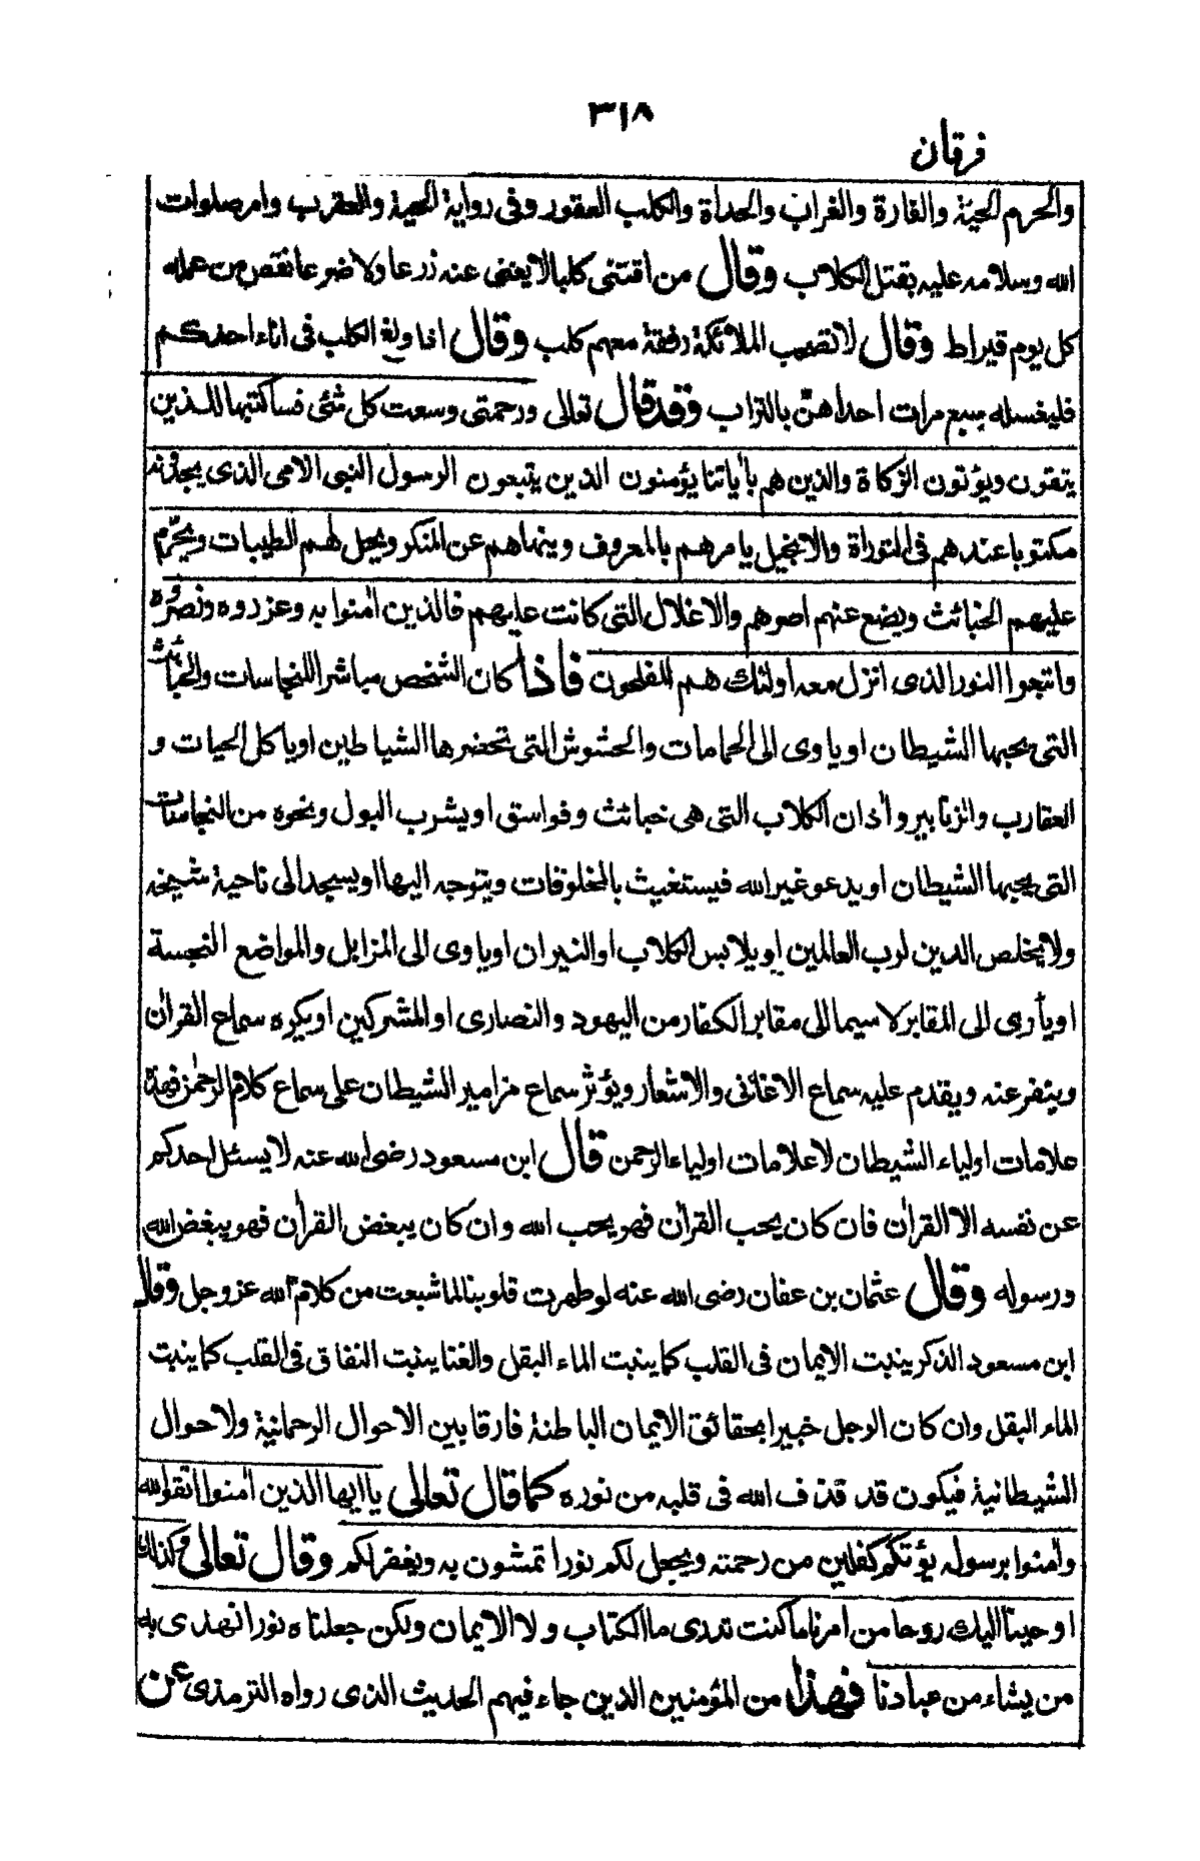 ٣١٨
فرقان
والحرم الحيّة والفارة والغراب والحداة والكلب العقور وفى رواية الحية والعقرب وامر صلوات
الله وسلامه عليه بقتل الكلاب وقال من اقتنى كلبا لا يغنى عنه زرعا ولا ضرعا نقص من عمله
كل يوم قيراط وقال لا تصحب الملائكة رفقة معهم كلب وقال اذا ولغ الكلب فى اناء احدكم
فليغسله سبع مرات احداهنّ بالتراب وقد قال تعالى ورحمتى وسعت كل شئى فساكتبها للذين
يتقون ويؤتون الزكاة والذين هم بأياتنا يؤمنون الذين يتبعون الرسول النبى الامى الذى يجدونه
مكتوبا عندهم فى التوراة والانجيل يامرهم بالمعروف وينهاهم عن المنكر ويحل لهم الطيبات ويحرّم
عليهم الخبائث ويضع عنهم اصرهم والاغلال التى كانت عليهم فالذين اٰمنوا به وعزروه ونصروه
واتبعوا النور الذى انزل معه اولئك هم المفلحون فاذا كان الشخص مباشرا للنجاسات والخبائث
التى يحبها الشيطان او ياوى الى الحمامات والحشوش التى تحضرها الشياطين او ياكل الحيات و
العقارب والزنابير وأذان الكلاب التى هى خبائث وفواسق او يشرب البول ونحوه من النجاسات
التى يحبها الشيطان او يدعو غير الله فيستغيث بالمخلوقات ويتوجه اليها او يسجد الى ناحية شيخه
ولا يخلص الدين لرب العالمين او يلابس الكلاب او النيران او ياوى الى المزابل والمواضع النجسة
او يأوى الى المقابر لا سيما الى مقابر الكفار من اليهود والنصارى او المشركين او يكره سماع القراٰن
وينفر عنه ويقدم عليه سماع الاغانى والاشعار ويؤثر سماع مزامير الشيطان على سماع كلام الرحمٰن فهذه
علامات اولياء الشيطان لا علامات اولياء الرحمن قال ابن مسعود رضى الله عنه لا يسئل احدكم
عن نفسه الا القراٰن فان كان يحب القراٰن فهو يحب الله وان كان يبغض القراٰن فهو يبغض الله
ورسوله وقال عثمان بن عفان رضى الله عنه لو طهرت قلوبنا لما شبعت من كلام الله عز وجل وقال
ابن مسعود الذكر ينبت الايمان فى القلب كما ينبت الماء البقل والغنا ينبت النفاق فى القلب كما ينبت
الماء البقل وان كان الرجل خبيرا بحقائق الايمان الباطنة فارقا بين الاحوال الرحمانية ولاحوال
الشيطانية فيكون قد قذف الله فى قلبه من نوره كما قال تعالى يا ايها الذين اٰمنوا اتقوا الله
واٰمنوا برسوله يؤتكم كفلين من رحمته ويجعل لكم نورا تمشون به ويغفر لكم وقال تعالى وكذلك
اوحينا اليك روحا من امرنا ما كنت تدرى ما الكتاب ولا الايمان ولكن جعلناه نورا نهدى به
من يشاء من عبادنا فهذا من المؤمنين الذين جاء فيهم الحديث الذى رواه الترمذى عن